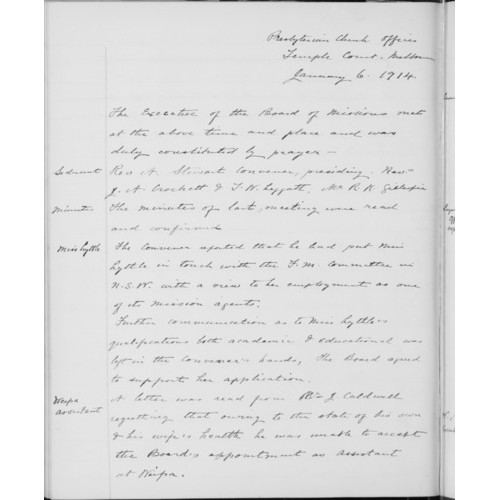 Presbyterian Church Offices
Temple Court. Melbo
January 6. 1914.
The Executive of the Board of Missions met
at the above time and place and was
duly constituted by prayer —
Sederunt Rev A. Stewart Convener, presiding. Rev.
J. A. Crockett & T. W. Leggatt, Mr R. K. Gillespie
Minutes The minutes of last meeting were read
and confirmed
Miss Lyttle The Convener reported that he had put Miss
Lyttle in touch with the F.M. Committee in
N.S.W. with a view to her employment as one
of its Mission agents.
Further communication as to Miss Lyttle's
qualifications both academic & educational was
left in the Convener's hands, The Board agreed
to support her application.
Weipa A letter was read from J. Caldwell
assistant regretting that owing to the state of his own
& his wife's health he was unable to accept
the Board's appointment as assistant
at Weipa.